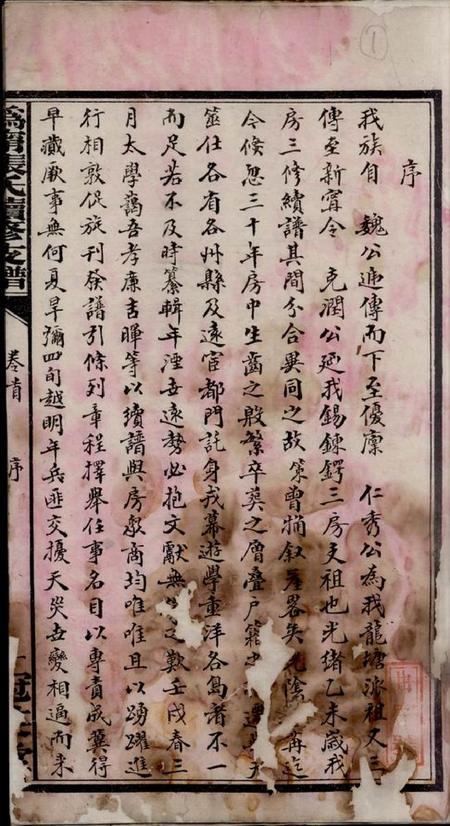 序
我族自 魏公遞傳而下至優廪 仁秀公為我龍塘派祖又三
傳至新甯令 克潤公延我錫鍊鍔三房支祖也光緒乙未歲我
房三修續譜其間分合異同之故 曾稍叙差畧矣光陰 再迄
今倏忽三十年房中生齒之殷繁卒葬之層疊户籍 遷
筮仕各省各州縣及遠宦都門託身戎幕遊學重洋各島者不一
而足若不及時纂輯年湮世遠勢必抱文獻無 之歎壬戌春三
月太學藹吾孝廉吉暉等以續譜與房眾商均唯唯且以踴躍進
行相敦促旋刊發譜引條列章程擇舉任事名目以專責成冀得
早蕆厥事無何夏旱彌四旬越明年兵匪交擾天災世變相逼而來
甯張氏續修支譜
卷首
序
①